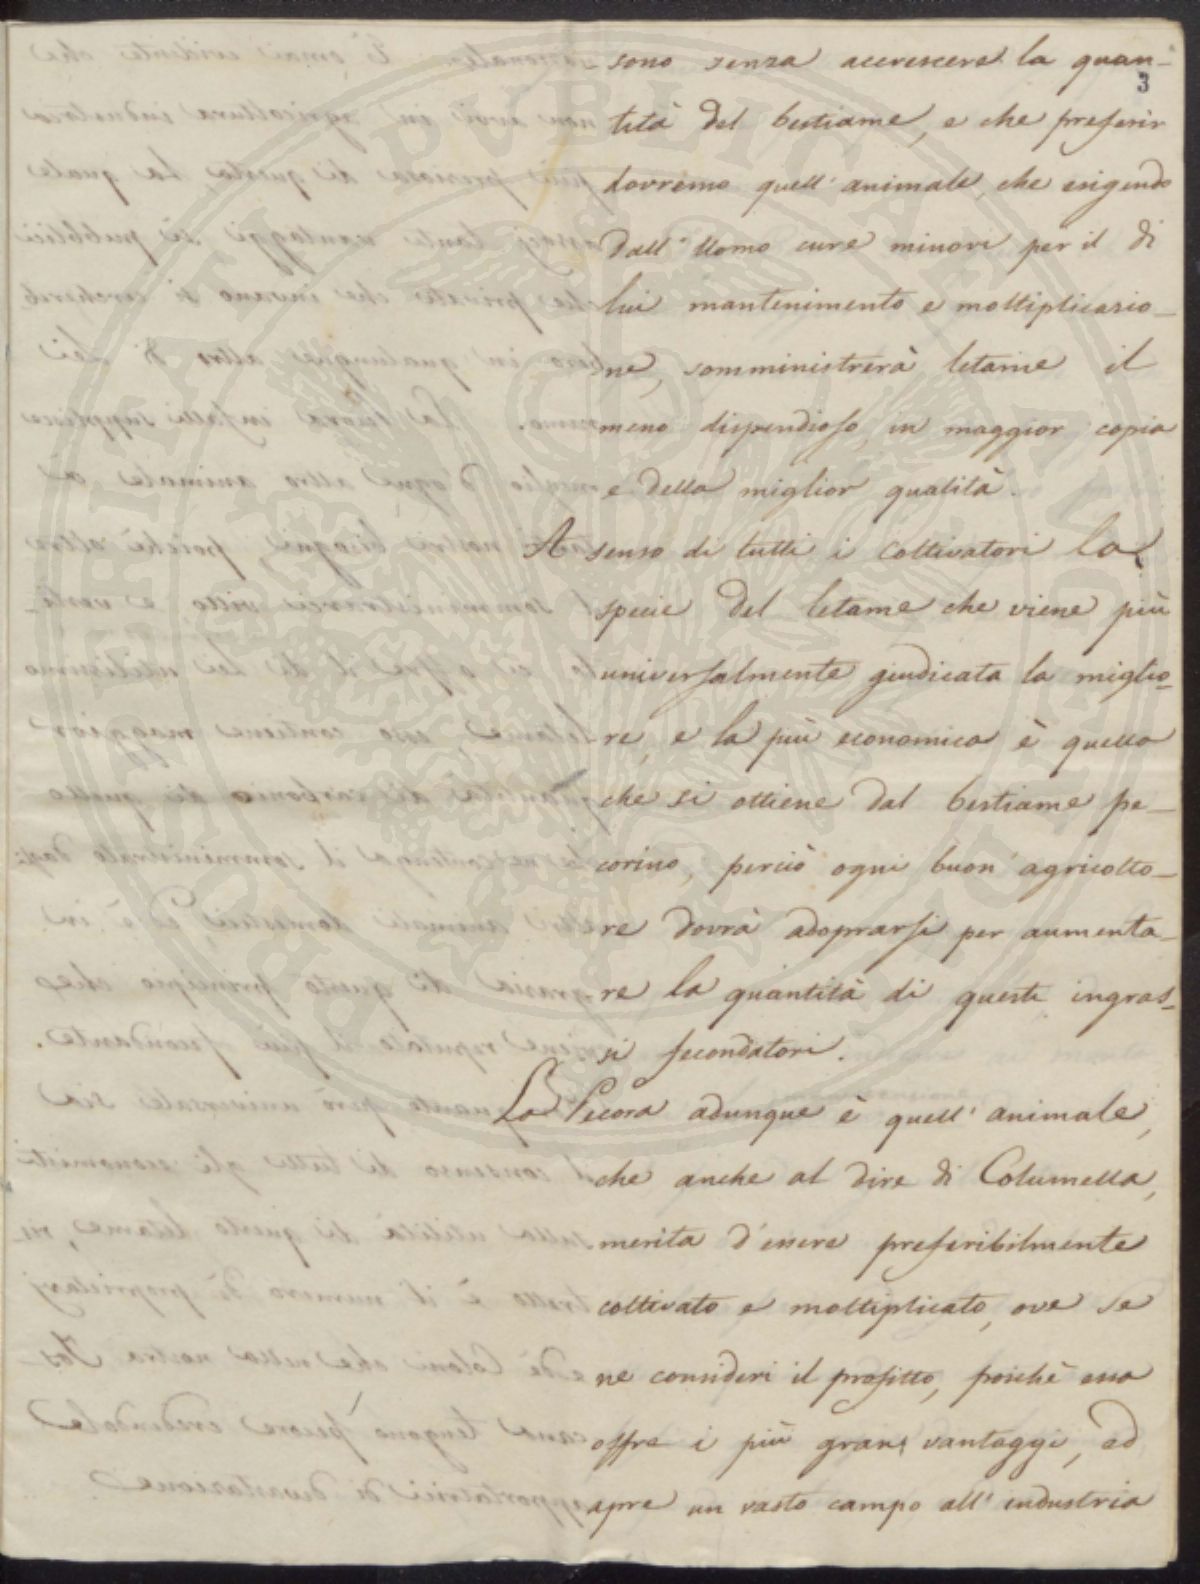 sono senza accrescere la quan-
3
tità del bestiame, e che preferir
dovremo quell' animale, che esigendo
dall' Uomo cure minori per il di
lui mantenimento e moltiplicazio-
ne, somministrerà letame il
meno dispendioso, in maggior copia
e della miglior qualità.
A senso di tutti i coltivatori la
specie del letame che viene più
universalmente giudicata la miglio-
re, e la più economica è quella
che si ottiene dal bestiame pe-
corino, perciò ogni buon' agricolto-
re dovrà adoprarsi per aumenta-
re la quantità di questi ingras-
si fecondatori.
La Pecora adunque è quell' animale,
che anche al dire di Columella,
merita d'essere preferibilmente
coltivato e moltiplicato, ove se
ne consideri il profitto, poichè essa
offre i più grani vantaggi, ed
apre un vasto campo all' industria